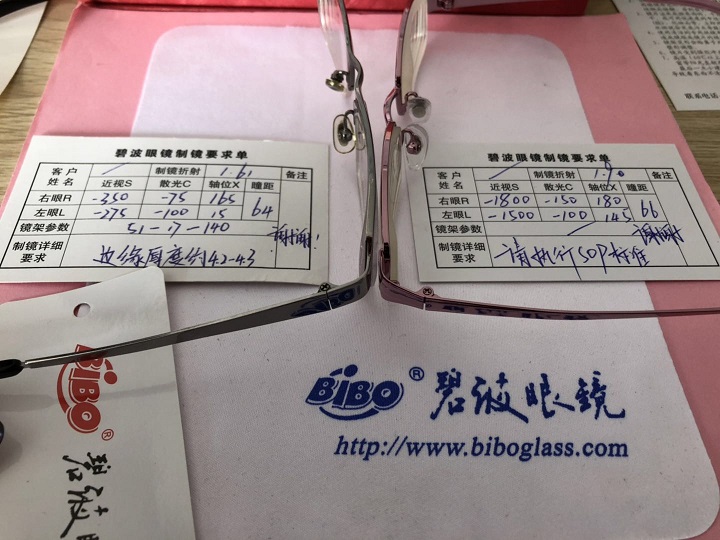 联系电话
碧波眼镜制镜要求单
客户姓名 制镜折射 1.61 备注
近视S 散光C 轴位X 瞳距
右眼R -350 -75 165 64
左眼L -275 -100 15
镜架参数 51-17-140 谢谢!
制镜详细要求 边缘厚度约4.2-4.3
碧波眼镜制镜要求单
客户姓名 制镜折射 1.90 备注
近视S 散光C 轴位X 瞳距
右眼R -1800 -150 180 66
左眼L -1500 -100 145
镜架参数 谢谢
制镜详细要求 请执行SOP标准
BiBO
BiBO® 碧波眼镜
http://www.biboglass.com
BiBO®
碧波眼